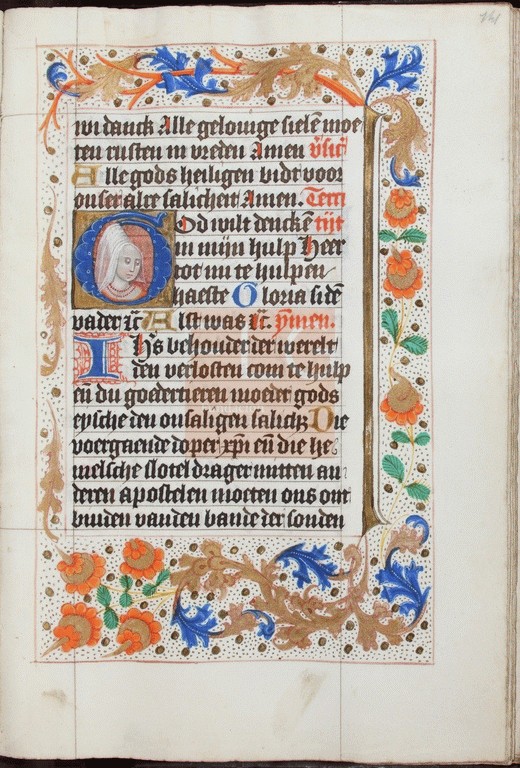 wi danck Alle gelouige sielē moe
ten rusten in vreden Amen v̄sic̄
Alle gods heiligen bidt voor
onser alre salicheit Amen. Terci
God wilt denckē tijt
in mijn hulp Heer
tot mi te hulpen
haeste Gloria si dē
vader ic̄ Alst was ic̄. ymen.
Ihs behouder der werelt
den verlosten com te hulp
eñ du goedertieren moeder gods
eysche den onsaligen salich₃ Die
voergaende doper xp̄i eñ die he
melsche slotel drager mitten an
deren apostelen moeten ons ont
binden vanden bande der sonden